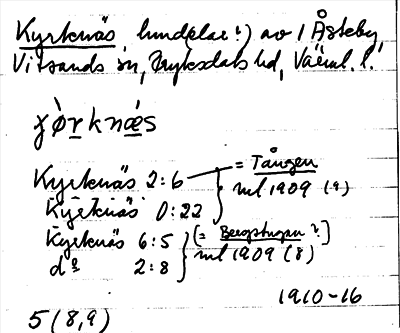 Kyrknäs hmdelar!) av 1 Åsteby
Vitsands sn, Fryksdals hd, Värml. l.
Kyrknäs 2:6 = Tången
Kyrknäs 0:22 ml 1909 (9)
Kyrknäs 6:5 [= Bergstugan?]
d:o 2:8 ml 1909 (8)
1910-16
5 (8,9)